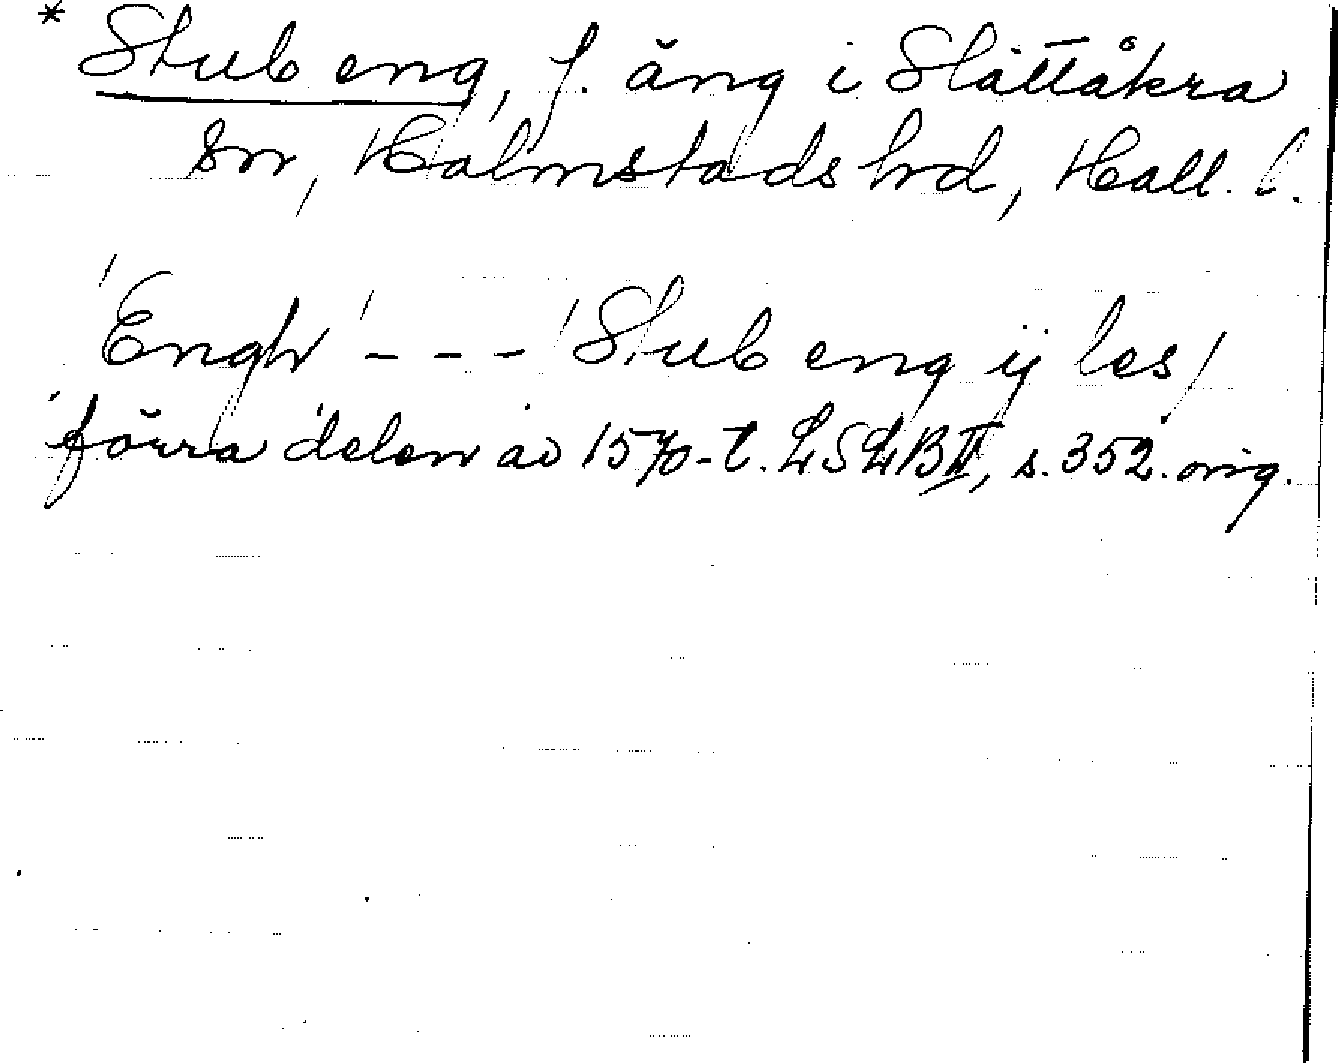 * Stub eng, f. äng i Slättåkra
sn, Halmstads hd, Hall. l.
'Engh' --- 'Stub eng ij les'
förra delen av 1570-t. LSLB II, s. 352. orig.